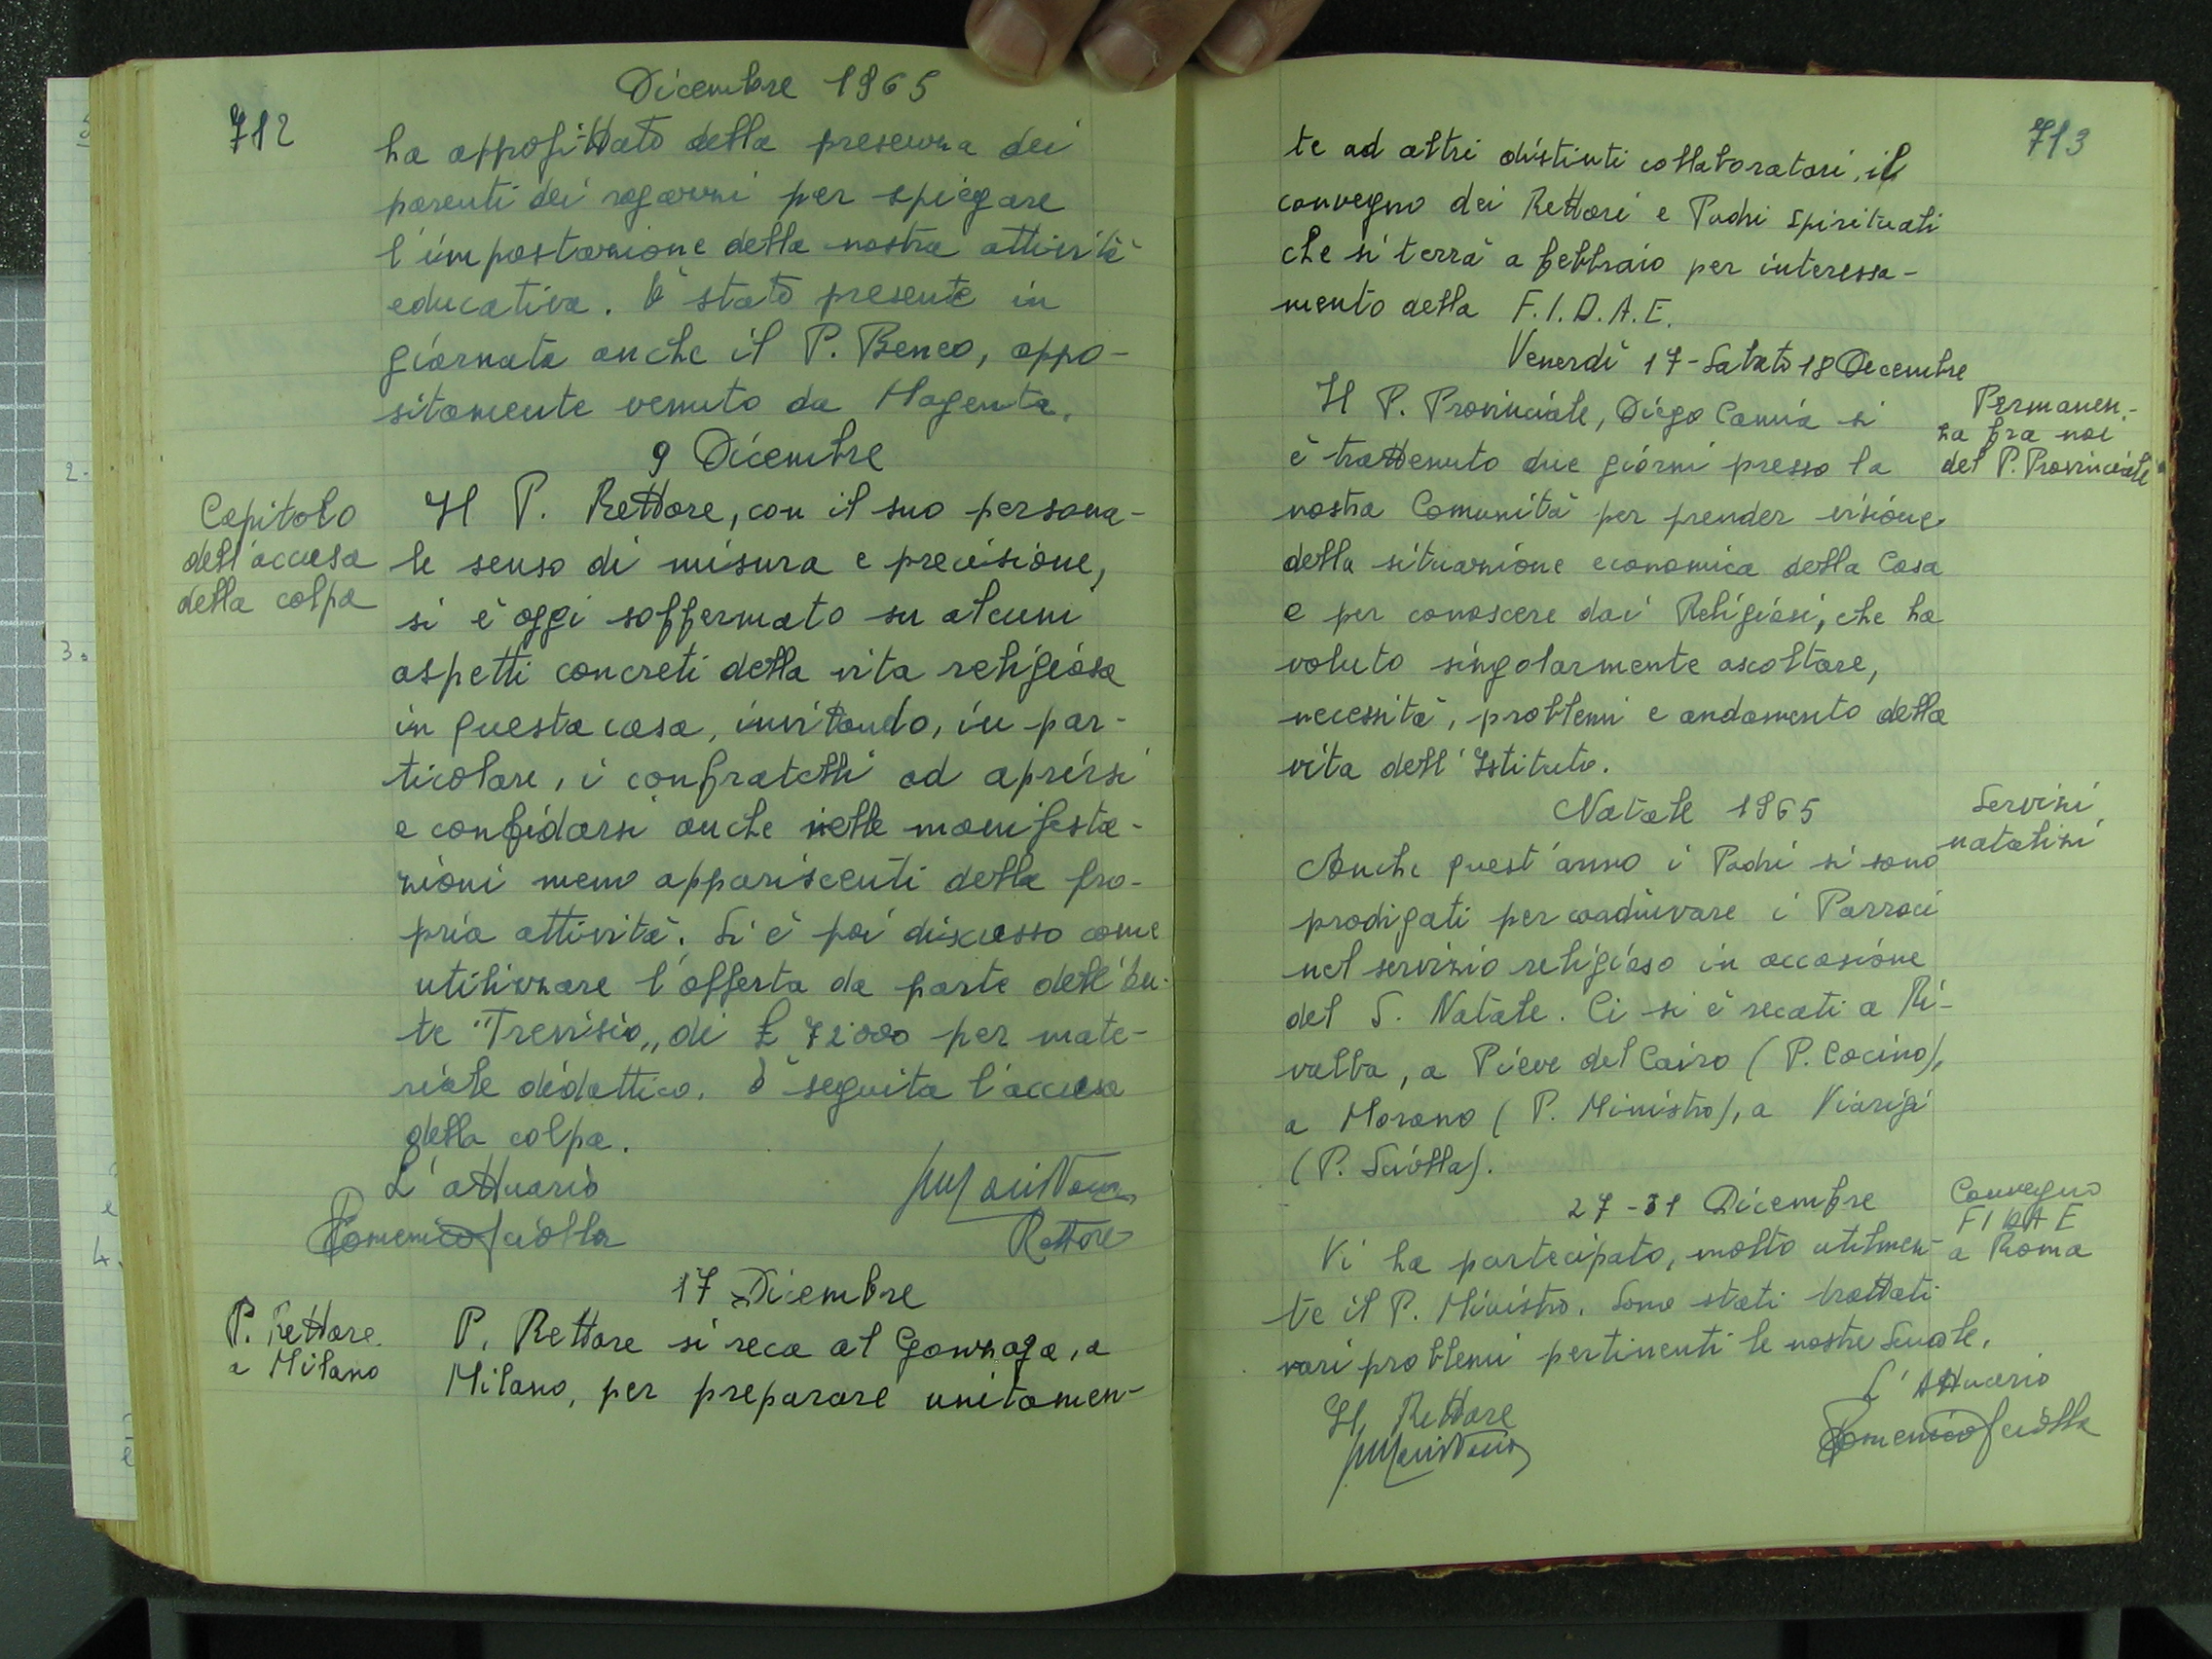 Dicembre 1965
712
ha approfittato della presenza dei
parenti dei ragazzi per spiegare
l'impostazione della nostra attività
educativa. È stato presente in
giornata anche il P. Beneo, appo-
sitamente venuto da Magenta.
9 Dicembre
Capitolo
dell'accusa
della colpa
Il P. Rettore, con il suo persona-
le senso di misura e precisione,
si è oggi soffermato su alcuni
aspetti concreti della vita religiosa
in questa casa, invitando, in par-
ticolare, i confratelli ad aprirsi
e confidarsi anche nelle manifesta-
zioni meno appariscenti della pro-
pria attività. Si è poi discusso come
utilizzare l'offerta da parte dell'En-
te "Trevisio" di £ 72000 per mate-
riale didattico. È seguita l'accusa
della colpa.
L'attuario
Domenico Sciolla
Rettore
17 Dicembre
P. Rettore
a Milano
P. Rettore si reca al Gonzaga, a
Milano, per preparare unitamen-
713
te ad altri distinti collaboratori, il
convegno dei Rettori e Padri Spirituali
che si terrà a febbraio per interessa-
mento della F.I.D.A.E.
Venerdì 17 - Sabato 18 Decembre
Permanen-
za fra noi
del P. Provinciale
Il P. Provinciale, Diego Camia si
è trattenuto due giorni presso la
nostra Comunità per prender visione
della situazione economica della Casa
e per conoscere dai Religiosi, che ha
voluto singolarmente ascoltare,
necessità, problemi e andamento della
vita dell'Istituto.
Natale 1965
Servizi
natalizi
Anche quest'anno i Padri si sono
prodigati per coadiuvare i Parroci
nel servizio religioso in occasione
del S. Natale. Ci si è recati a Ri-
valba, a Pieve del Cairo (P. Cocino),
a Morano (P. Ministro), a Viarigi
(P. Sciolla).
27-31 Dicembre
Convegno
FIDAE
a Roma
Vi ha partecipato, molto utilmen-
te il P. Ministro. Sono stati trattati
vari problemi pertinenti le nostre Scuole.
L'Attuario
Domenico Sciolla
Il Rettore